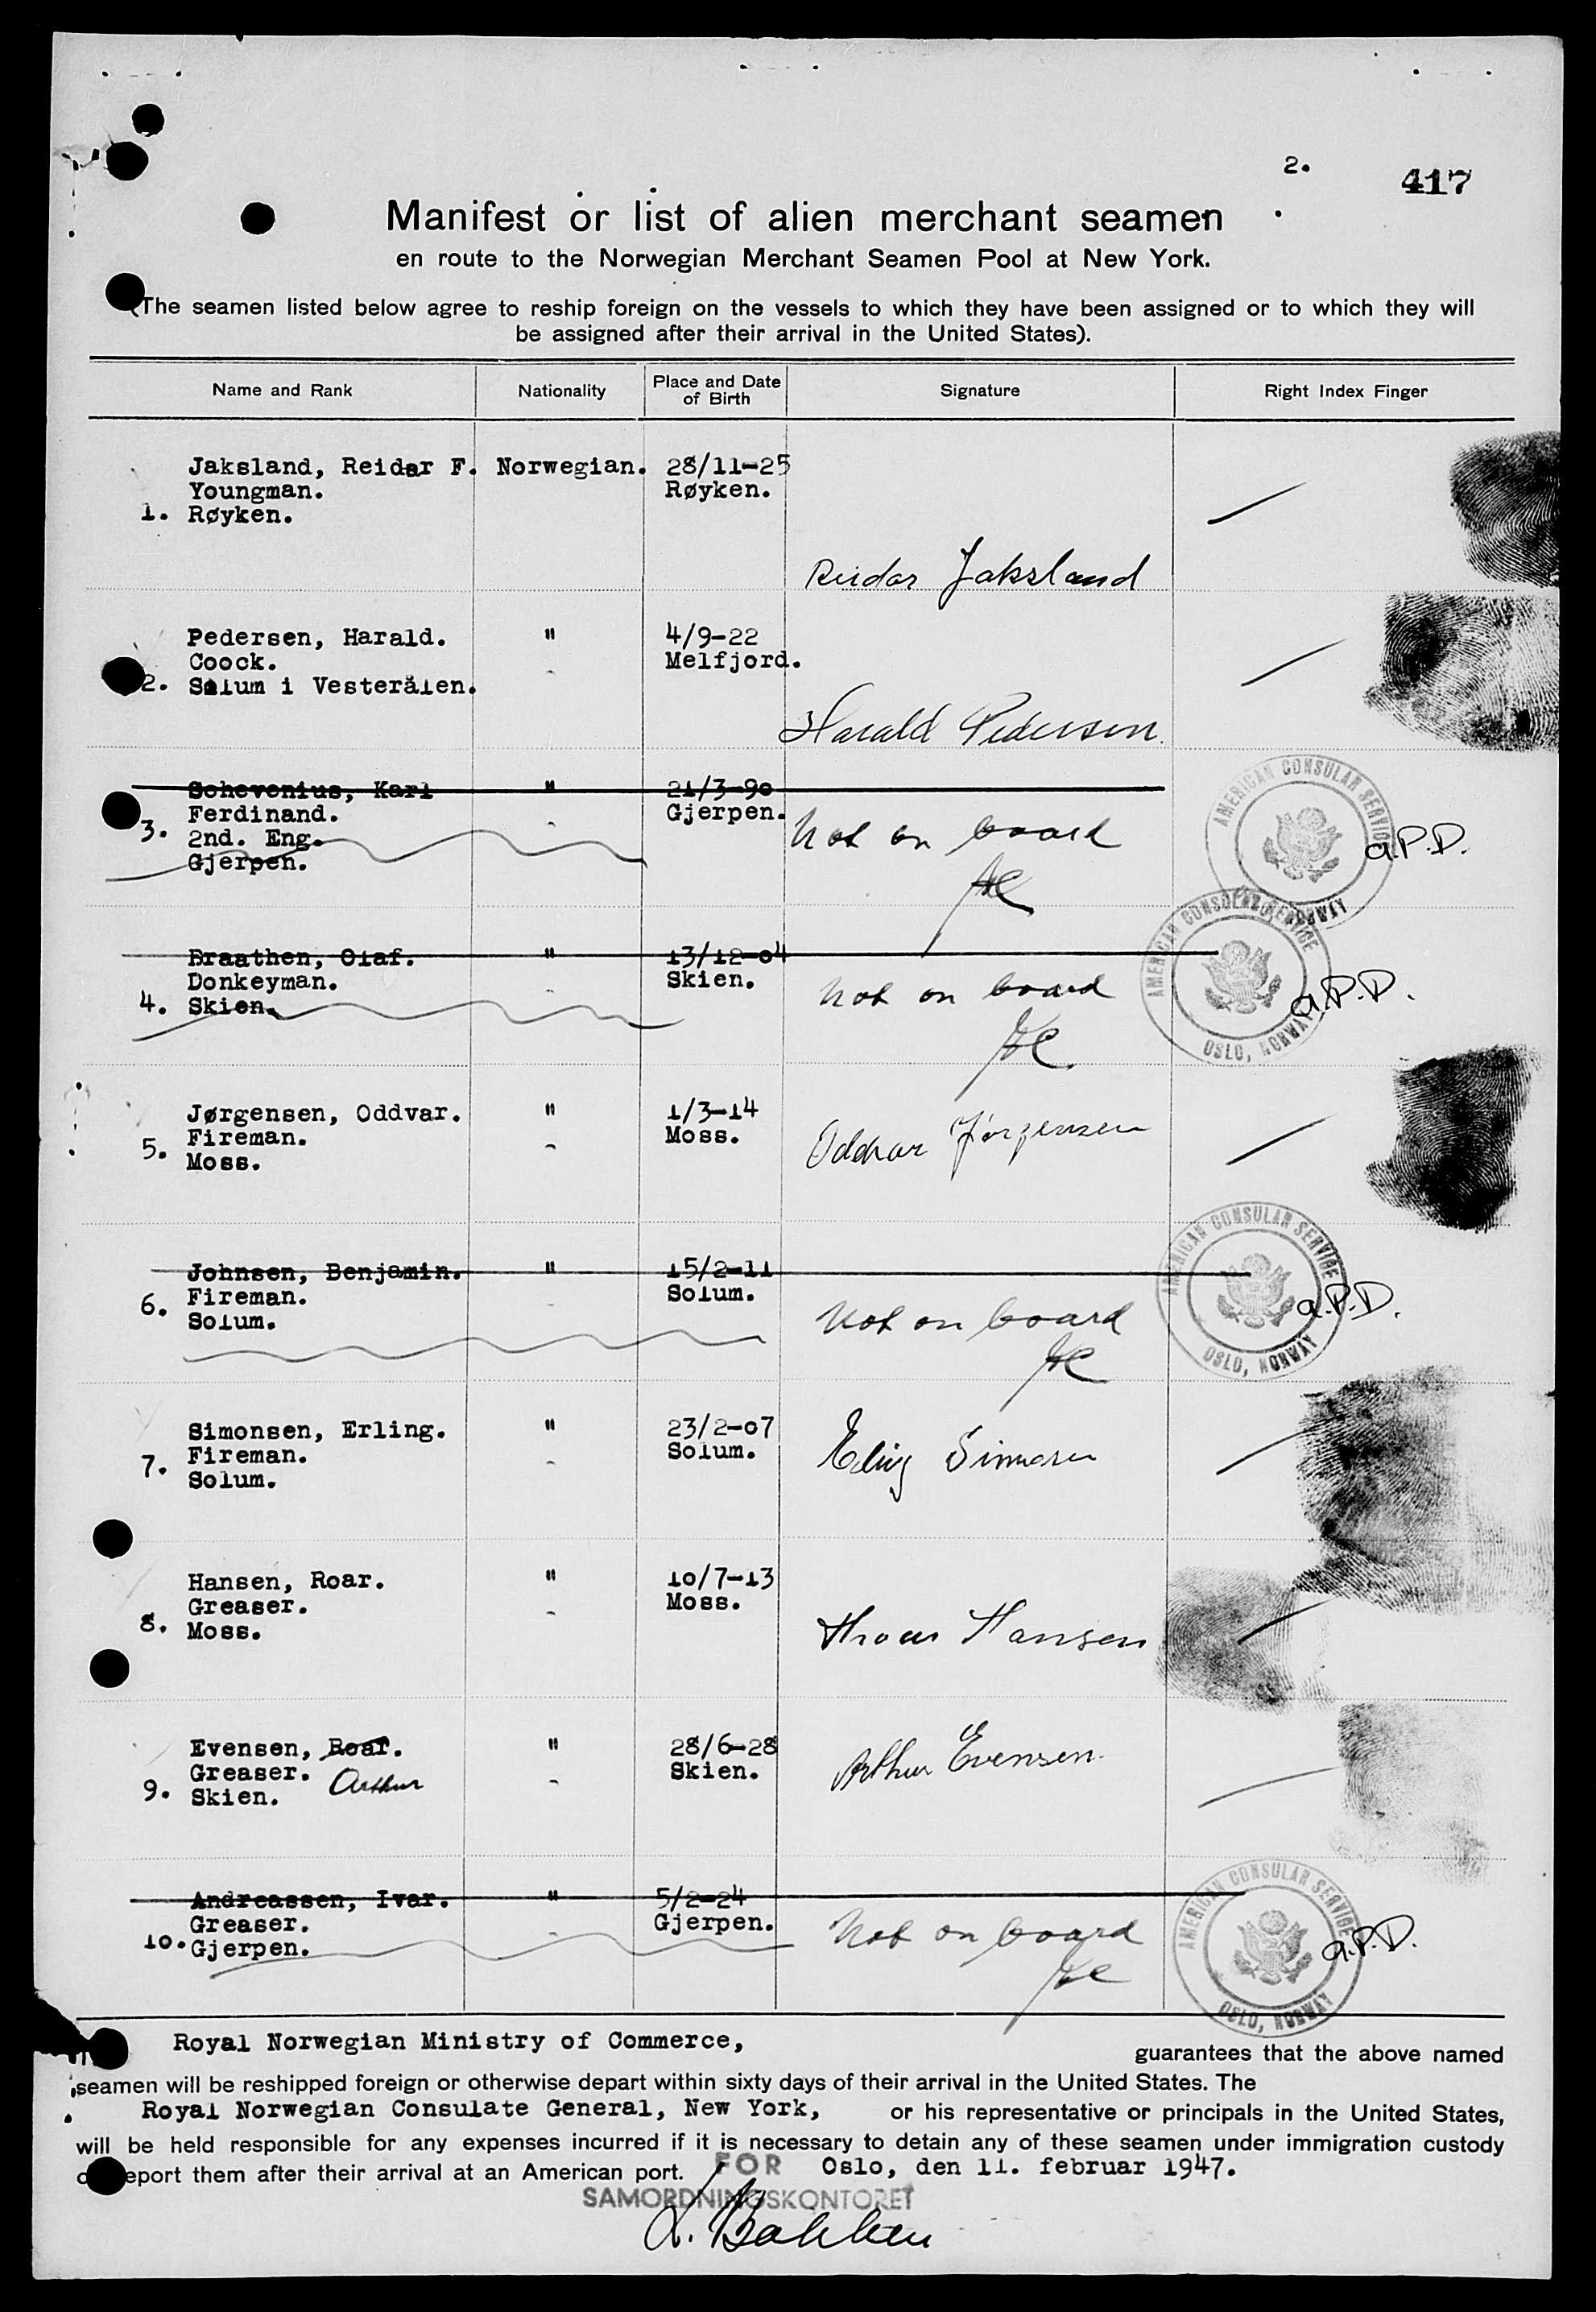 2.
417
Manifest or list of alien merchant seamen
en route to the Norwegian Merchant Seamen Pool at New York.
(The seamen listed below agree to reship foreign on the vessels to which they have been assigned or to which they will
be assigned after their arrival in the United States).
Name and Rank Nationality Place and Date of Birth Signature Right Index Finger
Jaksland, Reidar F. Norwegian. 28/11-25
Youngman. Røyken.
1. Røyken.
Reidar Jaksland
Pedersen, Harald. " 4/9-22
Coock. Melfjord.
2. Salum i Vesterålen.
Harald Pedersen
Schevenius, Karl " 21/3-90
Ferdinand. Gjerpen.
3. 2nd. Eng. Not on board
Gjerpen.
AMERICAN CONSULAR SERVICE
OSLO, NORWAY
a.P.D.
Braathen, Olaf. " 13/12-04
Donkeyman. Skien.
4. Skien. Not on board
AMERICAN CONSULAR SERVICE
OSLO, NORWAY
a.P.D.
Jørgensen, Oddvar. " 1/3-14
Fireman. Moss.
5. Moss.
Oddvar Jørgensen
Johnsen, Benjamin. " 15/2-11
Fireman. Solum.
6. Solum. Not on board
AMERICAN CONSULAR SERVICE
OSLO, NORWAY
a.P.D.
Simonsen, Erling. " 23/2-07
Fireman. Solum.
7. Solum.
Erling Simonsen
Hansen, Roar. " 10/7-13
Greaser. Moss.
8. Moss.
Hroar Hansen
Evensen, Roar. " 28/6-28
Greaser. Arthur Skien.
9. Skien.
Arthur Evensen
Andreassen, Ivar. " 5/2-24
Greaser. Gjerpen.
10. Gjerpen. Not on board
AMERICAN CONSULAR SERVICE
OSLO, NORWAY
a.P.D.
Royal Norwegian Ministry of Commerce, guarantees that the above named
seamen will be reshipped foreign or otherwise depart within sixty days of their arrival in the United States. The
Royal Norwegian Consulate General, New York, or his representative or principals in the United States,
will be held responsible for any expenses incurred if it is necessary to detain any of these seamen under immigration custody
eport them after their arrival at an American port. FOR Oslo, den 11. februar 1947.
SAMORDNINGSKONTORET
L. Bakken